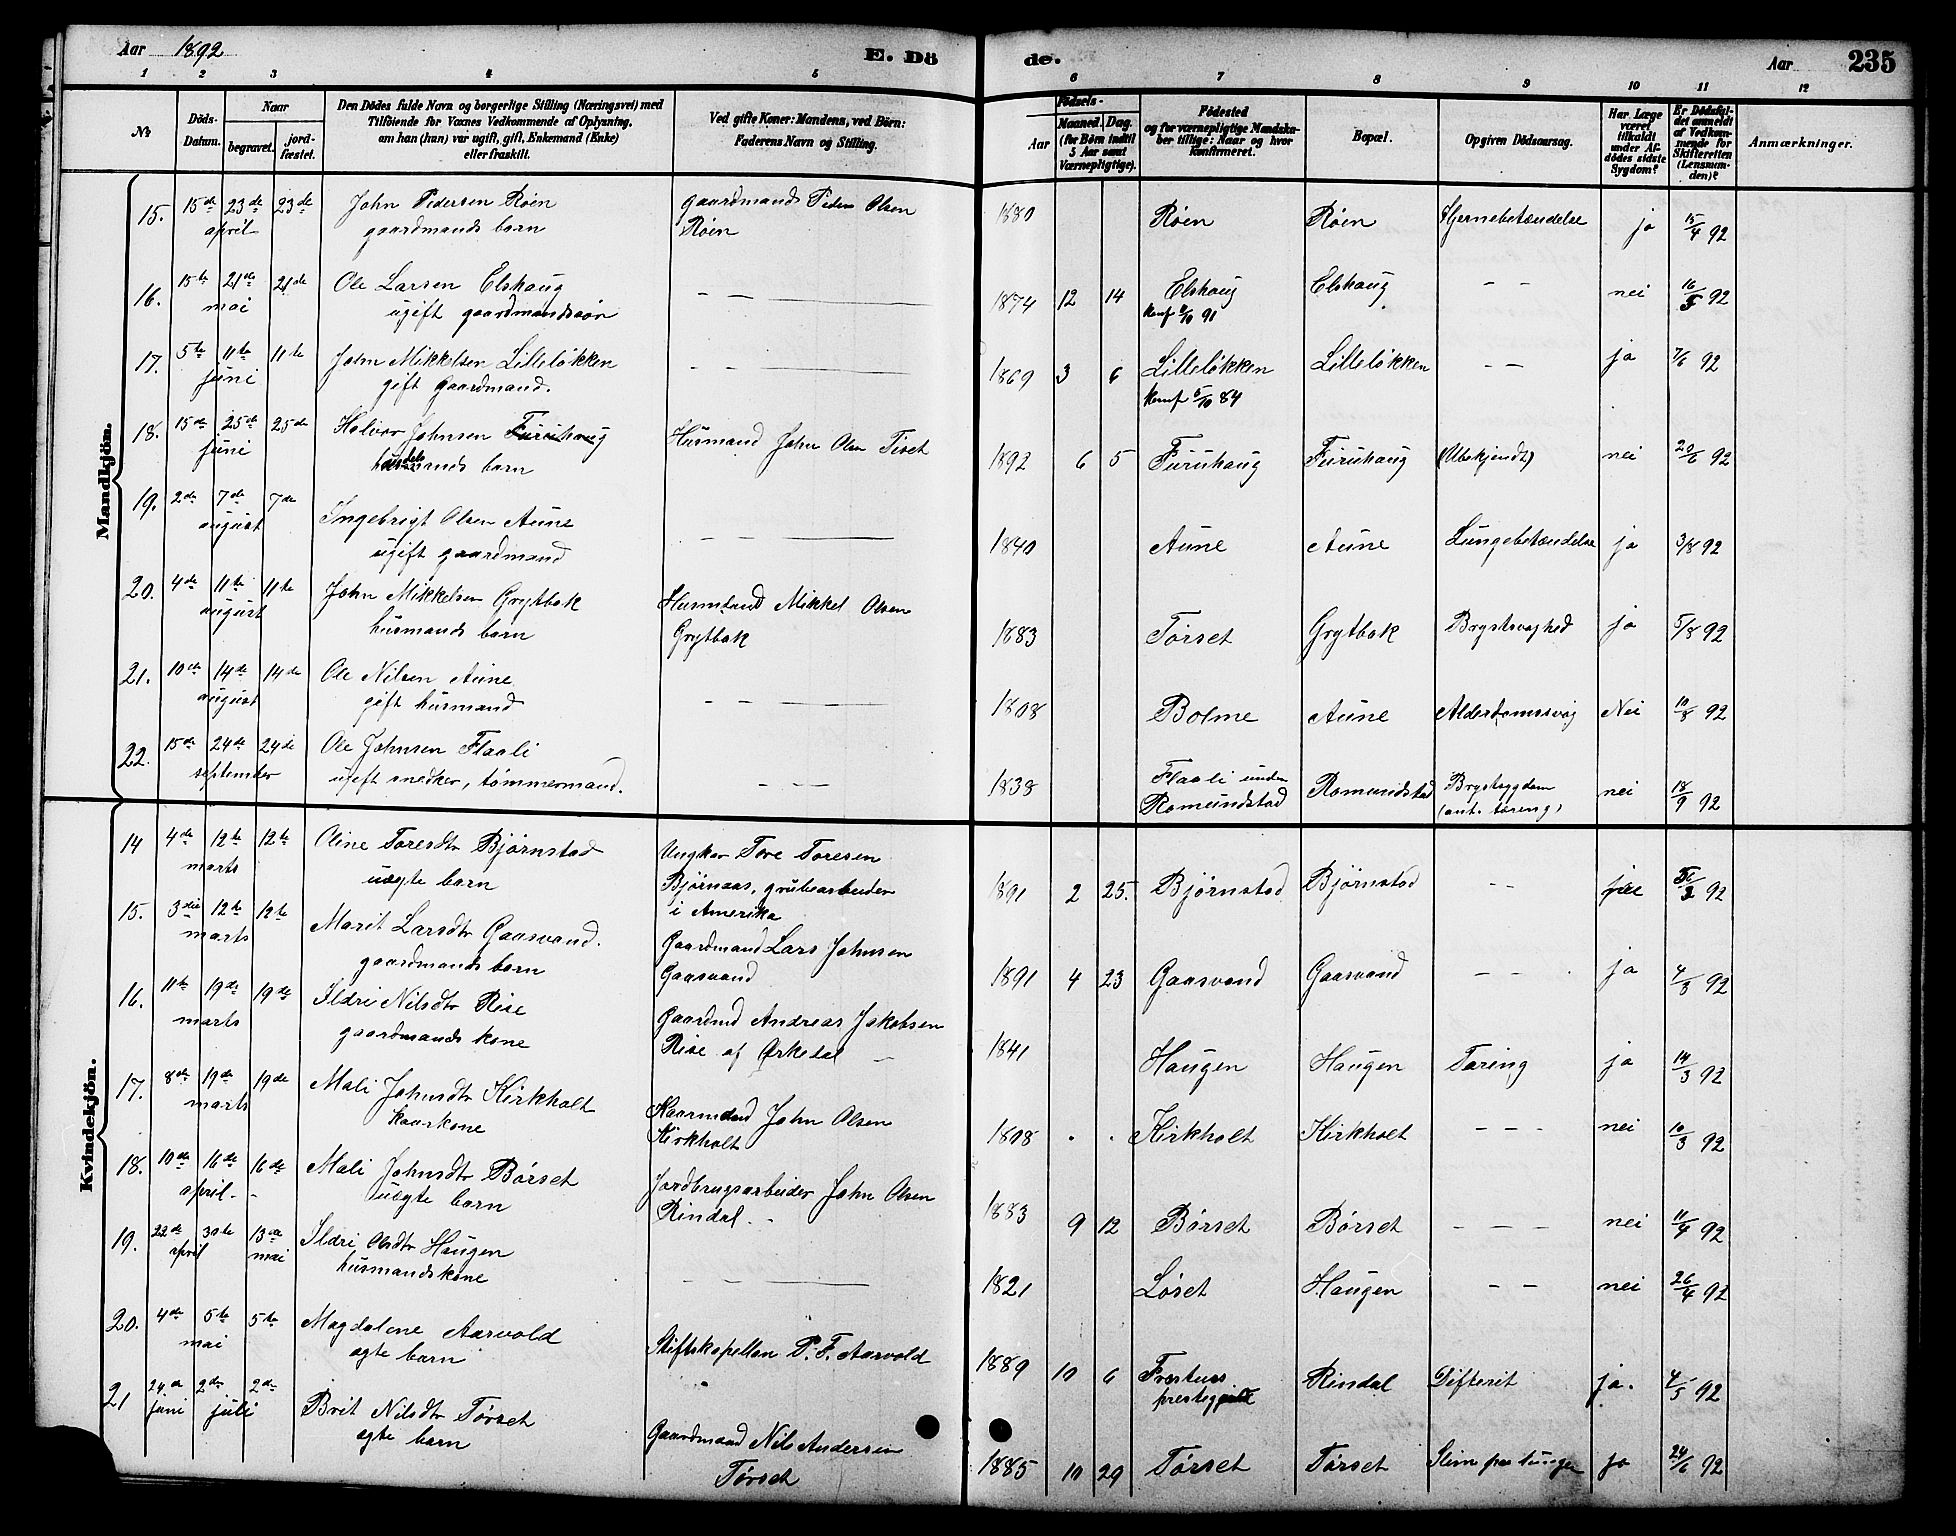 Aar 1892 E. Dö de. Aar 235
1 2 3 4 5 6 7 8 9 10 11 12
No
Döds-Datum.
Naar begravet. jordfæstet.
Den Dödes fulde Navn og borgerlige Stilling (Næringsvei) med
Tilföiende for Voxnes Vedkommende af Oplysning,
om han (hun) var ugift, gift, Enkemand (Enke)
eller fraskilt.
Ved gifte Koner: Mandens, ved Börn:
Faderens Navn og Stilling.
Födsels-
Aar Maaned. Dag.
(for Börn indtil 5 Aar samt Værnepligtige).
Födested
og for værnepligtige Mandskaber tillige: Naar og hvor konfirmeret.
Bopæl.
Opgiven Dödsaarsag.
Har Læge været tilkaldt under Afdödes sidste Sygdom?
Er Dödsfaldet anmeldt af Vedkommende for Skifteretten (Lensmanden)?
Anmærkninger.
Mandkjön.
15. 15de 23de 23de John Pedersen Röen gaardmands Peder Olsen 1880 Röen Röen Hjernebetændelse ja 15/4 92
april gaardmands barn Röen
16. 15te 21de 21de Ole Larsen Elshaug — — 1874 12 14 Elshaug Elshaug — — nei 16/5 92
mai ugift gaardmandssön konf 91
17. 5te 11te 11te John Mikkelsen Lillelökken — — 1869 3 6 Lillelökken Lillelökken — — ja 7/6 92
juni gift gaardmand. konf 5/10 84
18. 15de 25de 25de Halvor Johnsen Furuhaug Husmand John Olsen Tiset 1892 6 5 Furuhaug Furuhaug (Ubekjendt) nei 20/6 92
juni barn
19. 2de 7de 7de Ingebrigt Olsen Aune — — 1840 Aune Aune Lungebetændelse ja 3/8 92
august ugift gaardmand
20. 4de 11te 11te John Mikkelsen Grytbak Husmand Mikkel Olsen 1883 Törset Grytbak Brystsvaghed ja 5/8 92
august husmands barn Grytbak
21. 10de 14de 14de Ole Nilsen Aune — — 1808 Bolme Aune Alderdomssvag Nei 10/8 92
august gift husmand
22. 15de 24de 24de Ole Johnsen Flaali — — 1838 Flaali under Romundstad Romundstad Brystsygdom nei 18/9 92
september ugift snedker, tömmermand. (ant. tæring)
Kvindekjön.
14 4de 12te 12te Oline Toresdtr Björnstad Ungkar Tore Toresen 1891 2 25. Björnstad Björnstad — — 92
marts uægte barn Björnaas, grubearbeider
i Amerika
15. 3die 12te 12te Marit Larsdtr Gaasvand. Gaardmand Lars Johnsen 1891 4 23 Gaasvand Gaasvand — — ja 4/3 92
marts gaardmands barn Gaasvand
16. 11te 19de 19de Ildri Nilsdtr Rise Gaardmd Andreas Jakobsen 1841 Haugen Haugen Tæring ja 14/3 92
marts gaardmands kone Rise af Örkedal —
17. 8de 19de 19de Mali Johnsdtr Kirkholt Kaarmand John Olsen 1808 . . Kirkholt Kirkholt — — — nei 10/3 92
marts kaarkone Kirkholt
18. 10de 16de 16de Mali Johnsdtr Börset Jordbrugsarbeider John Olsen 1883 9 12 Börset Börset — — — nei 11/4 92
april. uægte barn Rindal. —
19. 22de 30te 13de Ildri Olsdtr Haugen — — 1821 Löset Haugen — — nei 26/4 92
april mai husmandskone
20. 4de 5te 5te Magdalene Aarvold Stiftskapellan P. F. Aarvold 1889 10 6 Fröstues Rindal Difterit ja. 4/5 92
mai ægte barn
21 24de 2den 2den Brit Nilsdtr Törset Gaardmand Nils Andersen 1885 10 29 Törset Törset Slim paa lunger ja 24/6 92
juni juli ægte barn Törset